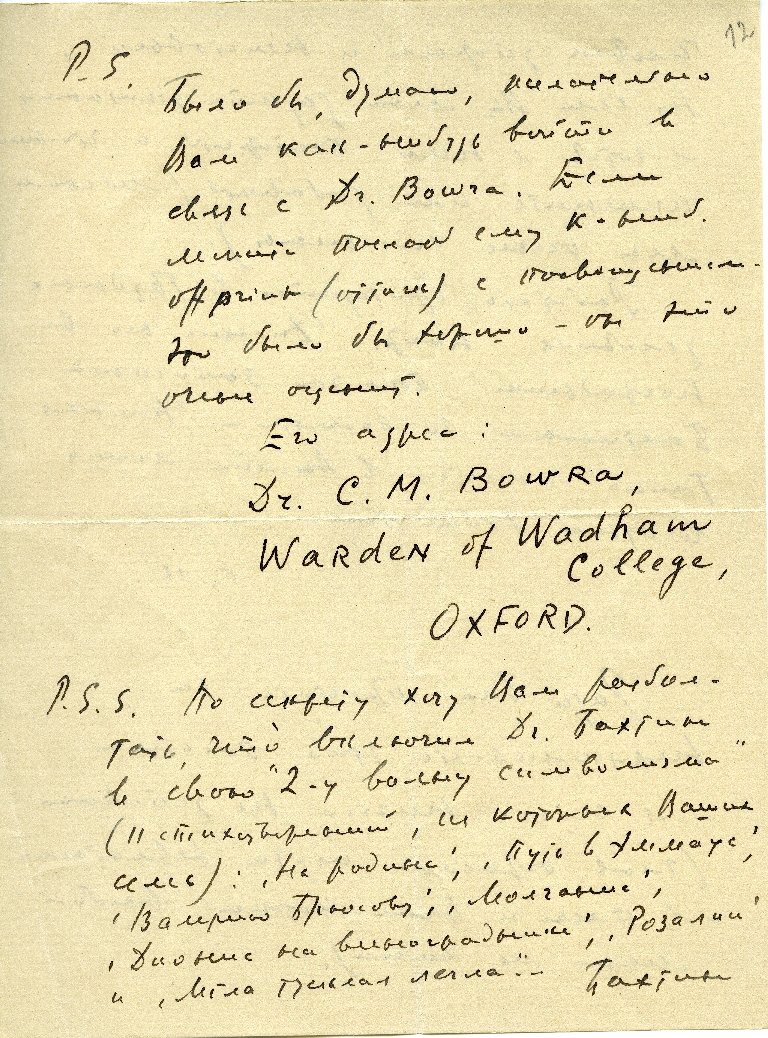 12
P. S.
Было бы, думаю, желательно
Вам как-нибудь войти в
связь с Dr. Bowra. Если
можно послать ему к.-ниб.
offprint (оттиск) с посвящением –
это было бы хорошо – он это
очень оценит.
Его адрес:
Dr. C. M. Bowra,
Warden of Wadham
College,
OXFORD.
P. S. S. По секрету хочу Вам разбол-
тать, что включил Dr. Бахтин
в свою "2-у волну символизма"
(11 стихотворений, из которых Ваших
семь): 'На родине', 'Путь в Эммаус',
'Валерию Брюсову', 'Молчание',
'Дионис на виноградниках', 'Розалии'
и 'Мгла тусклая легла'. – Бахтин